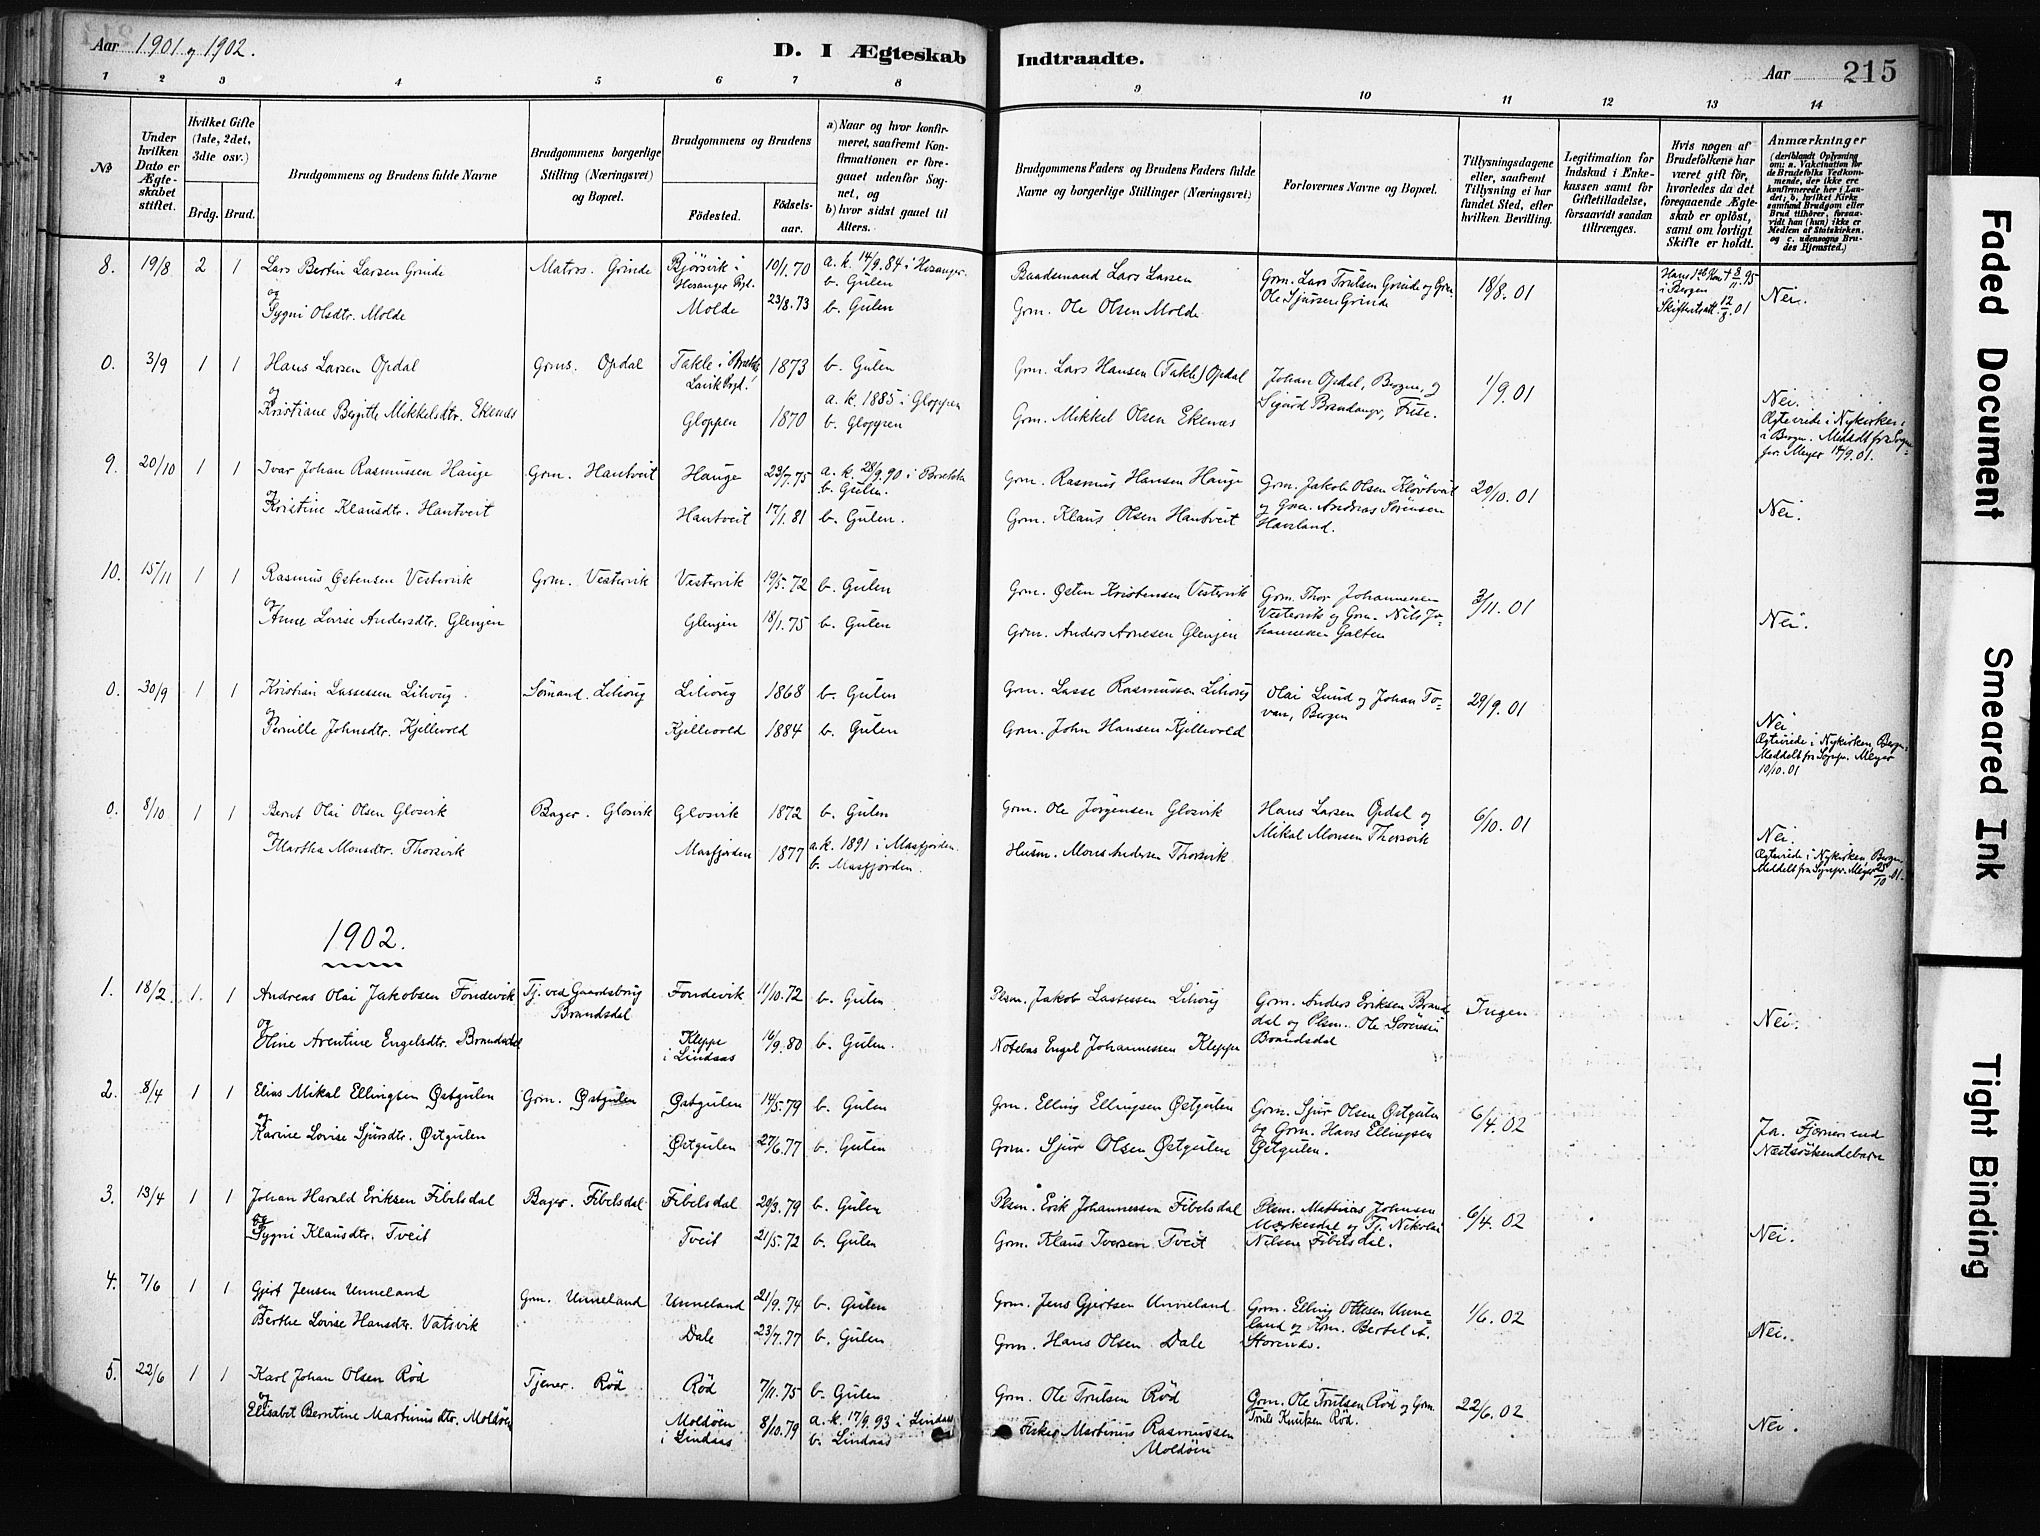 Aar 1901 og 1902.
D. I Ægteskab Indtraadte.
Aar 215
1 2 3 4 5 6 7 8 9 10 11 12 13 14
No
Under hvilken Dato er Ægteskabet stiftet.
Hvilket Gifte (1ste, 2det, 3die osv.)
Brdg. Brud.
Brudgommens og Brudens fulde Navne
Brudgommens borgerlige Stilling (Næringsvei) og Bopæl.
Brudgommens og Brudens
Fødested.
Fødselsaar.
a) Naar og hvor konfirmeret, saafremt Konfirmationen er foregaaet udenfor Sognet, og
b) hvor sidst gaaet til Alters.
Brudgommens Faders og Brudens Faders fulde Navne og borgerlige Stillinger (Næringsvei).
Forlovernes Navne og Bopæl.
Tillysningsdagene eller, saafremt Tillysning ei har fundet Sted, efter hvilken Bevilling.
Legitimation for Indskud i Enkekassen samt for Giftetilladelse, forsaavidt saadan tiltrænges.
Hvis nogen af Brudefolkene har været gift før, hvorledes da det foregaaende Ægteskab er opløst, samt om lovligt Skifte er holdt.
Anmærkninger
(deriblandt Oplysning om: a. Vakcination for de Brudefolks Vedkommende, der ikke ere konfirmerede her i Landet; b. hvilket Kirkesamfund Brudgom eller Brud tilhører, forsaavidt han (hun) ikke er Medlem af Statskirken, og c. udensogns Brudes Hjemsted.)
8. 19/8 2 1 Lars Bertin Larsen Grinde Matros. Grinde Bjørsvik i Hosanger Pgl. 10/1.70 a. k. 14/9.84 i Hosanger. b. Gulen Baadsmand Lars Larsen Grm. Lars Trulsen Grinde og Grm. Ole Sjursen Grinde 18/8.01 i Bergen Nei.
og Sygni Olsdtr. Molde Molde 23/8.73 b. Gulen Grm. Ole Olsen Molde
0. 3/9 1 1 Hans Larsen Opdal Grms. Opdal Takle i 1873 b. Gulen Grm. Lars Hansen (Takle) Opdal Johan Opdal, Bergen, og Sigurd 1/9.01
og Kristiane Bergitte Mikkelsdtr. Ekenes Gloppen 1870 a. k. 1885 i Gloppen b. Gloppen Grm. Mikkel Olsen Ekenæs Nei.
Ægteviede i Nykirken i Bergen. Meddelt fra Sogne- pr. Meyer 14/9.01.
9. 20/10 1 1 Ivar Johan Rasmussen Hauge Grm. Hantveit Hauge 23/7.75 a. k. 28/9.90 i b. Gulen. Grm. Rasmus Hansen Hauge Grm. Jakob Olsen Kløvtveit og Grm. Andreas Sørensen Haveland. 20/10.01
og Kristine Klausdtr. Hantveit Hantveit 17/1.81 b. Gulen. Grm. Klaus Olsen Hantveit Nei.
10. 15/11 1 1 Rasmus Østensen Vestervik Grm. Vestervik Vestervik 19/5.72 b. Gulen Grm. Østen Kristensen Vestervik Grm. Thor Johannessen Vestervik og Grm. Nils Johannesen Galten 3/11.01
og Anne Lovise Andersdtr. Glenjen Glenjen 18/1.75 b. Gulen Grm. Anders Arnesen Glenjen Nei.
0. 30/9 1 1 Kristian Lassesen Lihoug Sømand. Lihoug Lihoug 1868 b. Gulen Grm. Lasse Rasmussen Lihoug Olai Lund og Johan Tovan, Bergen 29/9.01
og Pernille Johnsdtr. Kjellevold Kjellevold 1884 b. Gulen Grm. John Hansen Kjellevold Nei
Ægteviede i Nykirken, Bergen. Meddelt fra Sognpr. Meyer 10/10.01
0. 8/10 1 1 Bernt Olai Olsen Glosvik Bager. Glosvik Glosvik 1872 b. Gulen Grm. Ole Jørgensen Glosvik Hans Larsen Opdal og Mikal Monsen Thorsvik 6/10.01
og Martha Monsdtr. Thorsvik Masfjorden 1877 a. k. 1891 i Masfjorden. b. Masfjorden. Husm. Mons Andersen Thorsvik Nei.
Ægteviede i Nykirken, Bergen. Meddelt fra Sognpr. Meyer 25/10.01.
1902.
1. 18/2 1. 1 Andreas Olai Jakobsen Fondevik Tj. ved Gaardsbrug Brandsdal Fondevik 11/10.72 b. Gulen Plsm. Jakob Lassesen Lihoug Grm. Anders Eriksen Brandsdal og Plsm. Ole Sørensen Brandsdal Ingen
og Oline Arentine Engelsdtr. Brandsdal Kleppe i Lindaas 16/9.80 b. Gulen. Notebas Engel Johannessen Kleppe Nei.
2. 8/4 1 1 Elias Mikal Ellingsen Østgulen Grm. Østgulen Østgulen 14/5.79 b. Gulen Grm. Elling Ellingsen Østgulen Grm. Sjur Olsen Østgulen og Grm. Hans Ellingsen Østgulen. 6/4.02
og Karine Lovise Sjursdtr. Østgulen Østgulen 27/6.77 b. Gulen Grm. Sjur Olsen Østgulen Ja. Fjernere end Næstsøskendebarn
3. 13/4 1 1 Johan Harald Eriksen Fibelsdal Bager. Fibelsdal Fibelsdal 20/3.79 b. Gulen Plsm. Erik Johannessen Fibelsdal Plsm. Mathias Johnsen Mørkesdal og Tj. Nikolai Nilsen Fibelsdal. 6/4.02
og Sygni Klausdtr. Tveit Tveit 21/5.72 b. Gulen Grm. Klaus Iversen Tveit Nei.
4. 7/6 1 1 Gjert Jensen Unneland Grm. Unneland Unneland 21/9.74 b. Gulen Grm. Jens Gjertsen Unneland Grm. Elling Ottesen Unneland og Grm. Bertel A. 1/6.02
og Berthe Lovise Hansdtr. Vatsvik Dale 23/7.77 b. Gulen Grm. Hans Olsen Dale Nei.
5. 22/6 1 1 Karl Johan Olsen Rød Tjener. Rød Rød 7/11.75 b. Gulen Grm. Ole Trulsen Rød Grm. Ole Trulsen Rød og Grm. Truls Knutsen Rød. 22/6.02
og Elisabet Berntine Martinusdtr. Moldøen Moldøen i Lindaas 8/10.79 a. k. 17/9.93 i Lindaas b. Lindaas Fisker Martinus Rasmussen Moldøen Nei.
Faded Document
Smeared Ink
Tight Binding